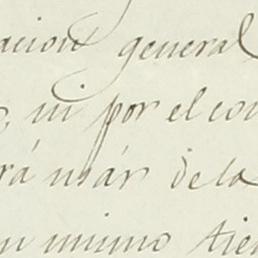 acion general
, ni por el con
rá usár de la
n mismo tie